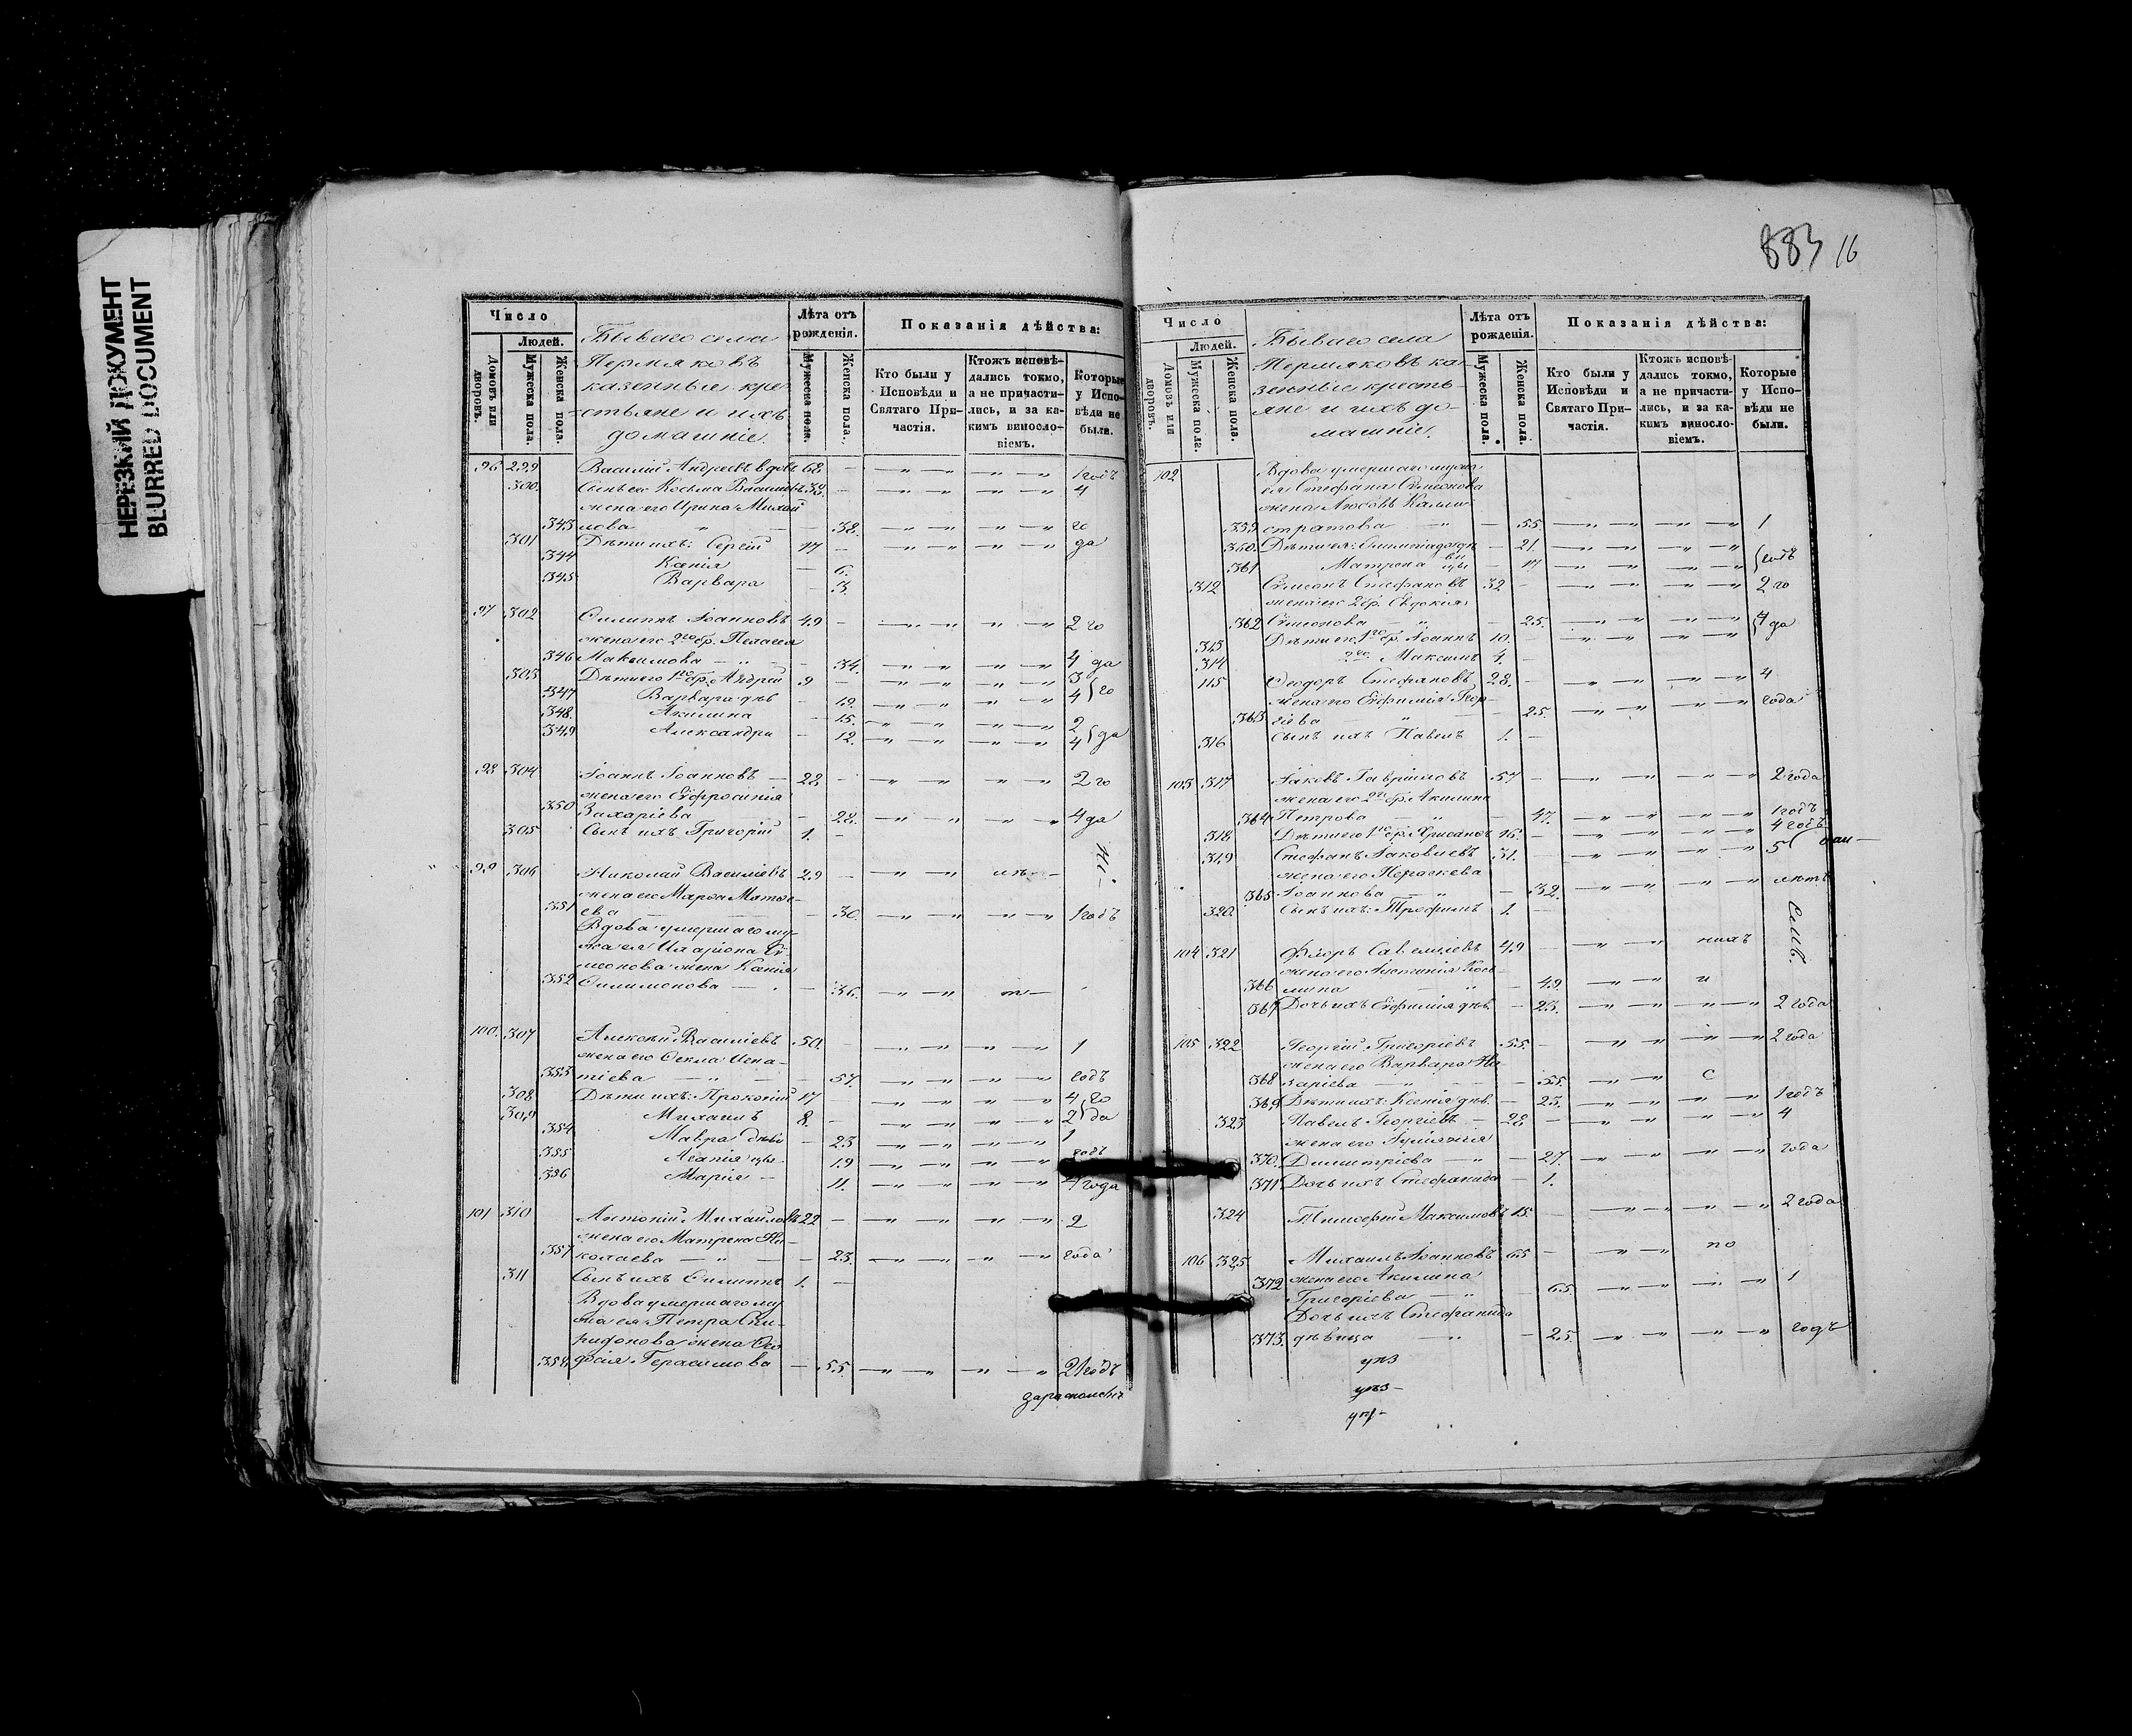 НЕРЕЗКИЙ ДОКУМЕНТ
BLURRED DOCUMENT
883 16
Число
Людей.
Домовъ или дворовъ.
Мужеска пола.
Женска пола.
Бывшаго села
Пермяковъ
казенные кре-
стьяне и ихъ
домашніе.
Лѣта отъ рожденія.
Мужеска пола.
Женска пола.
Показанія дѣйства:
Кто были у Исповѣди и Святаго Причастія.
Ктожъ исповѣдались токмо, а не причастились, и за какимъ винословіемъ.
Которые у Исповѣди не были.
96 299 Василій Андреевъ вдовъ 68 1 годъ
300. Сынъ его Косьма Васильевъ 38. 4
жена его Ирина Михай
343 лова 38. го
301 Дѣти ихъ: Сергій 17 да
344 Ксенія 6.
345 Варвара 3.
97 302 Филиппъ Іоанновъ 49 2 го
жена его 2го бр. Пелагея
346 Максимова 34. 4 да
303 Дѣти его 1го бр. Андрей 9 3
347 Варвара дѣв 19. 4 го
348. Акилина 15. 2
349 Александра 12. 4 да
98 304 Іоаннъ Іоанновъ 28 2 го
жена его Евфросинія
350 Захаріева 28. 4 да
305 Сынъ ихъ Григорій 1.
99 306 Николай Василіевъ 29
жена его Марѳа Матѳе-
351 ева 30. 1 годъ
Вдова умершаго му-
жа ея Иларіона Си
меонова жена Ксенія
352 Филимонова 36.
100. 307 Алексій Василіевъ 50. 1
жена его Ѳекла Игна-
353 тіева 57. годъ
308 Дѣти ихъ: Прокопій 17 4 го
309 Михаилъ 8. 2 да
354 Мавра 23 1
355 Агапія 19 годъ
356 Марія 11. 4 года
101 310 Антоній Михайловъ 22 2
жена его Матрена Ни-
357 колаева 23. года
311 Сынъ ихъ Филиппъ 1.
Вдова умершаго му
жа ея Петра Спи-
ридонова жена Ѳео
358. досія Герасимова 55. 2 1 годъ
Число
Людей.
Домовъ или дворовъ.
Мужеска пола.
Женска пола.
Бывшаго села
Пермяковъ ка-
зенные кресть-
яне и ихъ до-
машніе.
Лѣта отъ рожденія.
Мужеска пола.
Женска пола.
Показанія дѣйства:
Кто были у Исповѣди и Святаго Причастія.
Ктожъ исповѣдались токмо, а не причастились, и за какимъ винословіемъ.
Которые у Исповѣди не были.
102 Вдова умершаго мужа
ея Стефана Симеонова
жена Любовь Калли-
359 стратова 55. 1
360. Дѣти ея: 21.
361 Матрена 17 годъ
312 Симеонъ Стефановъ 32 2 го
жена его 2 бр. Евдокія
362 Симонова 25. 4 да
313 Дѣти его 1го бр. Іоаннъ 10.
314 2го Максимъ 4.
115 Ѳеодоръ Стефановъ 28. 4
жена его Евфимія Геор-
363 гіева 25. года
316 Сынъ ихъ Павелъ 1.
103 317 Іаковъ Гавріиловъ 57 2 года
жена его 2го бр. Акилина
364 Петрова 47. 1 годъ
318 Дѣти его 1го бр. Хрисанѳъ 16. 4 годъ
319 Стефанъ Іаковлевъ 31. 5
жена его Параскева
365 Іоаннова 32. лѣтъ
320. Сынъ ихъ: Трофимъ 1.
104 321 Флоръ Савеліевъ 49
жена его Косм-
366 мина 49.
367 Дочь ихъ Евфимія дѣв. 23. 2 года
105 322 Георгій Григоріевъ 55. 2 года
жена его Варвара На
368 заріева 55. с
369 Дѣти ихъ: Ксенія дѣв. 23. 1 годъ
323 Павелъ Георгіевъ 28 4
жена его Іуліянія
370. Димитріева 27. года
371 Дочь ихъ Стефанида 1.
324 Тимофей Максимовъ 15. 2 года
106 325 Михаилъ Іоанновъ 65 по
жена его Акилина
372 Григоріева 65 1
Дочь ихъ Стефанида
373. дѣвица 25. годъ